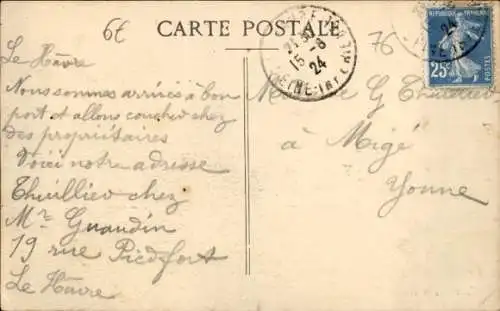 6€
CARTE POSTALE
76
LE HAVRE
21 30
15 - 6
24
SEINE-INFRE
RÉPUBLIQUE FRANÇAISE
25c
POSTES
Le Hâvre
Nous sommes arrivés à bon
port et allons coucher chez
des propriétaires
Voici notre adresse
Thuillier chez
Mr Guandin
19 rue Piedfort
Le Hâvre
G Thuillier
à Migé
Yonne